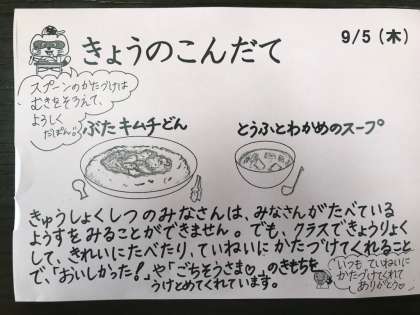 きょうのこんだて
9/5 (木)
スプーンのかたづけは
むきをそろえて、
ようしく
だぽん。
ぶたキムチどん
とうふとわかめのスープ
きゅうしょくしつのみなさんは、みなさんがたべている
ようすをみることができません。でも、クラスできょうりょく
して、きれいにたべたり、ていねいにかたづけてくれること
で、「おいしかった!」や「ごちそうさま♡」のきもちを
うけとめてくれています。
いつもていねいに
かたづけてくれて
ありがとう♡